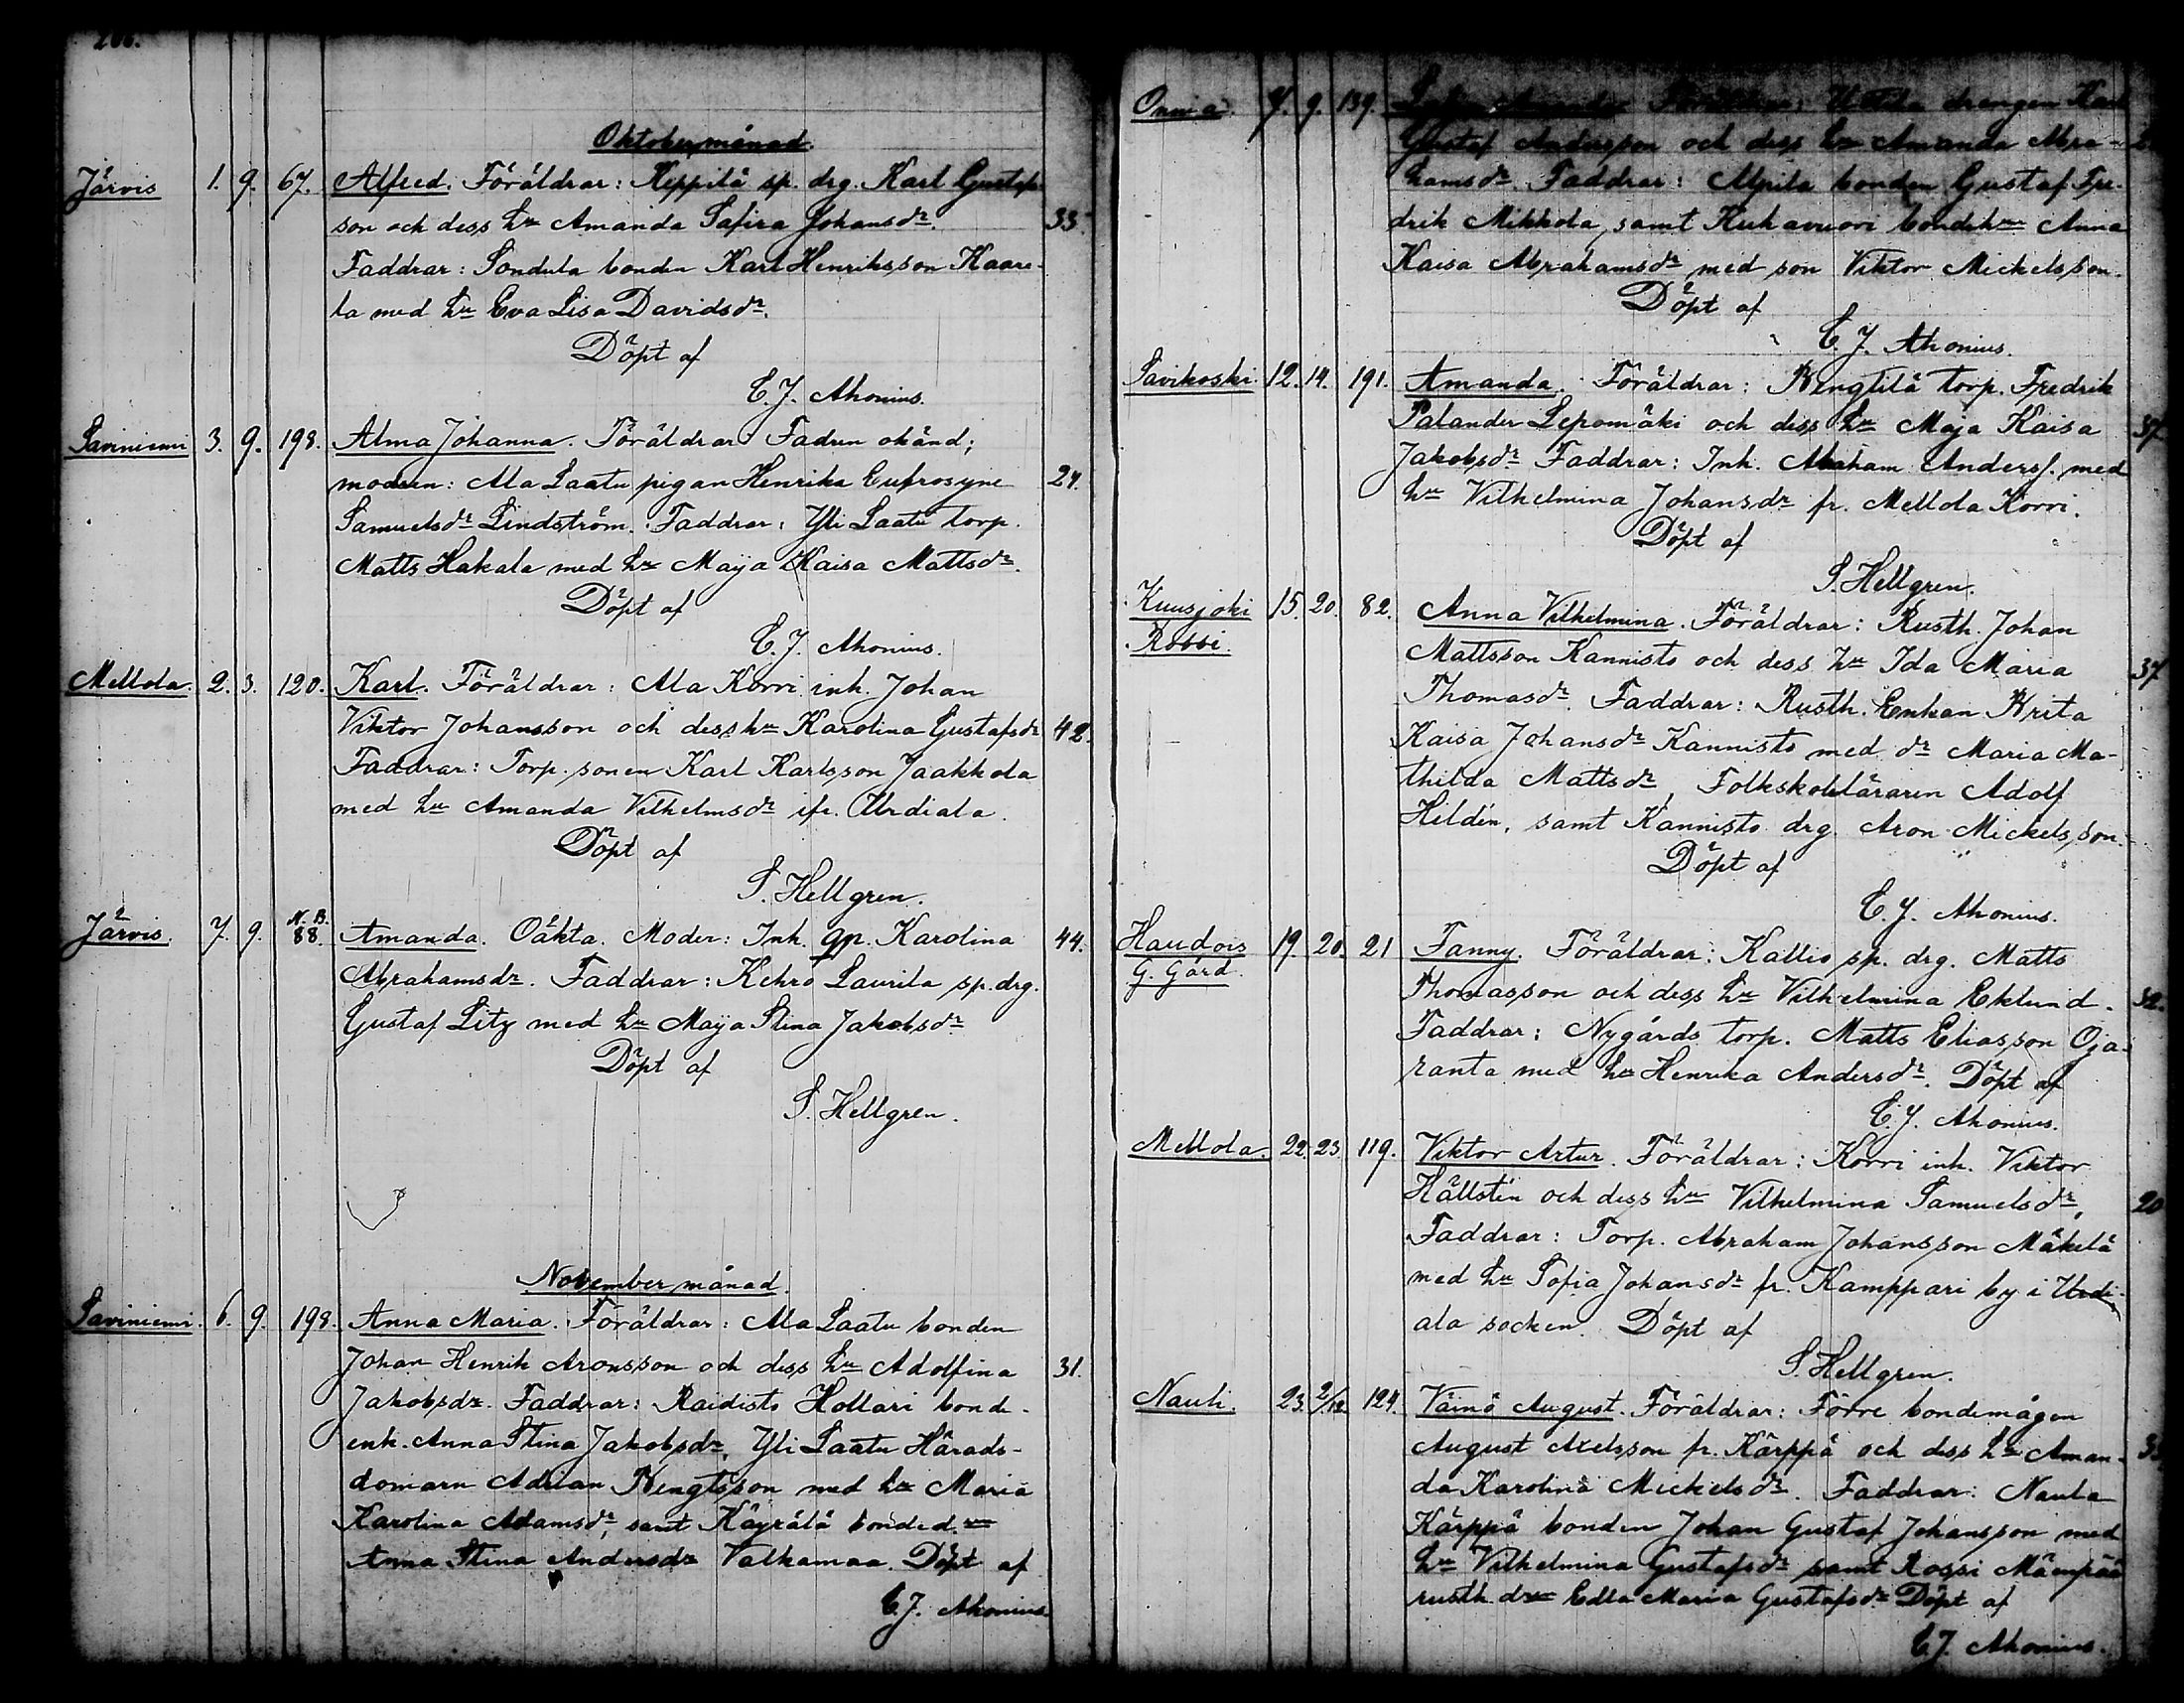 206.
Oktober månad.
Järvis 1. 9. 67. Alfred. Föräldrar: Keppilä sp. drg. Karl Gustafs-
son och dess hu Amanda Safira Johansdr. 33.
Faddrar: Sondula bonden Karl Henriksson Kaare-
la med hu Eva Lisa Davidsdr.
Döpt af
C. J. Ahonius.
Saviniemi 3. 9. 198. Alma Johanna. Föräldrar: Fadren okänd;
modren: Ala Laatu pigan Henrika Eufrosyne 24.
Samuelsdr Lindström. Faddrar: Yli Laatu torp.
Matts Hakala med hu Maija Kaisa Mattsdr.
Döpt af
C. J. Ahonius.
Mellola. 2. 3. 120. Karl. Föräldrar: Ala Korri inh. Johan
Viktor Johansson och dess hu Karolina Gustafsdr 42.
Faddrar: Torp. sonen Karl Karlsson Jaakkola
med hu Amanda Vilhelmsdr ifr. Urdiala.
Döpt af
S. Hellgren.
Järvis. 7. 9. N. B. 88. Amanda. Oäkta. Moder: Inh. qp. Karolina 44.
Abrahamsdr. Faddrar: Kehrö Laurila sp. drg.
Gustaf Litz med hu Maija Stina Jakobsdr
Döpt af
S. Hellgren.
November månad.
Saviniemi. 6. 9. 198. Anna Maria. Föräldrar: Ala Laatu bonden
Johan Henrik Aronsson och dess hu Adolfina 31.
Jakobsdr. Faddrar: Raidisto Hollari bonde-
enk. Anna Stina Jakobsdr, Yli Laatu Härads-
domarn Adrian Bengtsson med hu Maria
Karolina Adamsdr, samt Käyrälä bonded.
Anna Stina Andersdr Valkamaa. Döpt af
C. J. Ahonius.
7. 9. 139. Föräldrar: drengen Karl
Gustaf Andersson och dess hu Amanda Abra-
hamsdr. Faddrar: Alpila bonden Gustaf Fre-
drik Mikkola, samt Kukavuori bondehun Anna
Kaisa Abrahamsdr med son Viktor Mickelsson.
Döpt af
C. J. Ahonius.
Savikoski. 12. 14. 191. Amanda. Föräldrar: Bengtilä torp. Fredrik
Palander Lepomäki och dess hu Maja Kaisa 37.
Jakobsdr Faddrar: Inh. Abraham Anderss. med
hu Vilhelmina Johansdr fr. Mellola Korri.
Döpt af
S. Hellgren.
Kuusjoki 15. 20. 82. Anna Vilhelmina. Föräldrar: Rusth. Johan
Rossi. Mattsson Kannisto och dess hu Ida Maria 37
Thomasdr. Faddrar: Rusth. Enkan Brita
Kaisa Johansdr Kannisto med dr Maria Ma-
thilda Mattsdr, Folkskoleläraren Adolf
Hildén, samt Kannisto drg. Aron Mickelsson.
Döpt af
C. J. Ahonius.
Haudois 19. 20. 21 Fanny. Föräldrar: Kallio sp. drg. Matts
G. Gård. Thomasson och dess hu Vilhelmina Eklund. 32.
Faddrar: Nygårds torp. Matts Eliasson Oja-
ranta med hu Henrika Andersdr. Döpt af
C. J. Ahonius.
Mellola. 22. 23. 119. Viktor Artur. Föräldrar: Korri inh. Viktor
Hällstén och dess hu Vilhelmina Samuelsdr, 20
Faddrar: Torp. Abraham Johansson Mäkelä
med hu Sofia Johansdr fr. Kamppari by i Urdi-
ala socken. Döpt af
S. Hellgren.
Nauli. 23. 2/12. 124. Väinö August. Föräldrar: Förre bondemågen
August Axelsson fr. Kärppä och dess hu Aman-
da Karolina Mickelsdr. Faddrar: Naula
Kärppä bonden Johan Gustaf Johansson med
hu Vilhelmina Gustafsdr samt Rossi Mäenpää
rusth. dr Edla Maria Gustafsdr Döpt af
C. J. Ahonius.